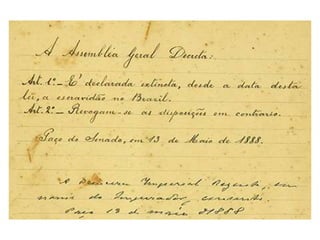 A Assembléa Geral Decreta:
Art. 1º— E' declarada extincta, desde a data desta
lei, a escravidão no Brazil.
Art. 2º— Revogam-se as disposições em contrario.
Paço do Senado, em 13 de Maio de 1888.
A Princeza Imperial Regente, em
nome do Imperador, consente.
Paço 13 de maio 1888